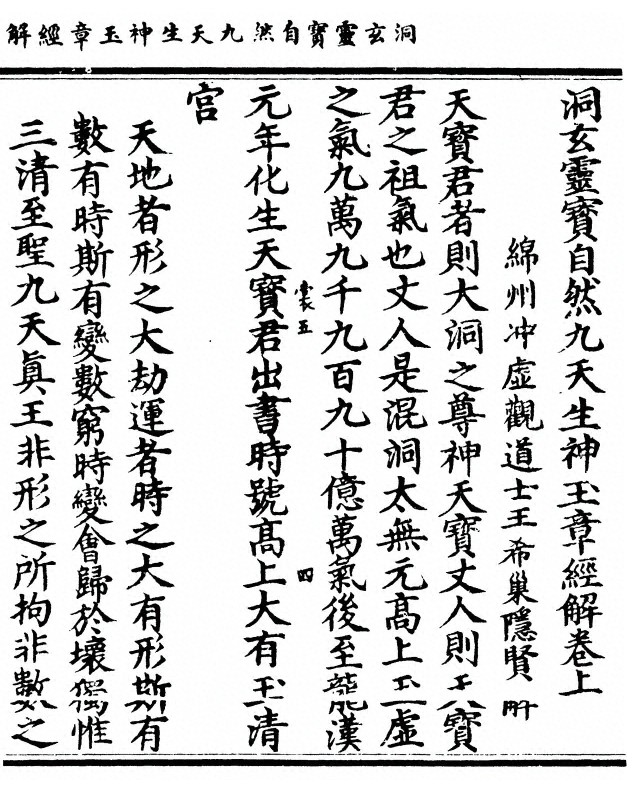 洞玄靈寶自然九天生神玉章經解
洞玄靈寶自然九天生神玉章經解卷上
綿州冲虛觀道士王希巢隱賢解
天寶君者則大洞之尊神天寶丈人則天寶
君之祖氣也丈人是混洞太無元高上玉虛
之氣九萬九千九百九十億萬氣後至龍漢
元年化生天寶君出書時號高上大有玉清
宮
裳五
四
天地者形之大劫運者時之大有形斯有
數有時斯有變數窮時變會歸於壞獨惟
三清至聖九天真王非形之所拘非數之